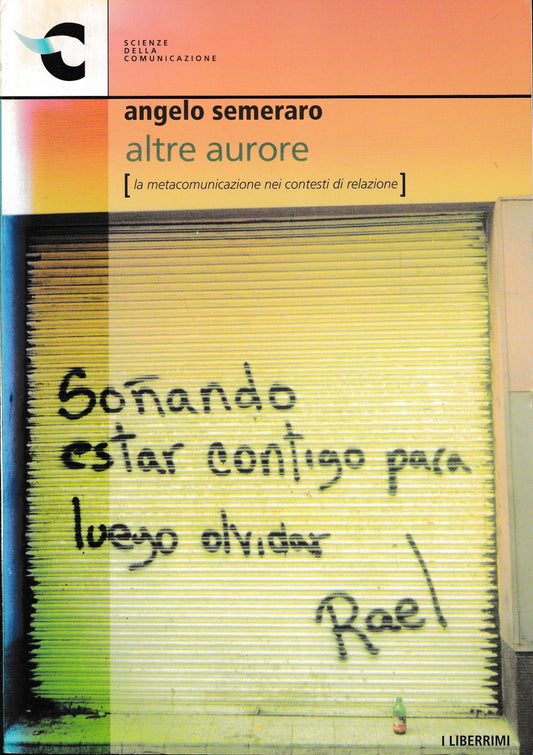 SCIENZE
DELLA
COMUNICAZIONE
angelo semeraro
altre aurore
[la metacomunicazione nei contesti di relazione]
Soñando
estar contigo para
luego olvidar
Rael
I LIBERRIMI